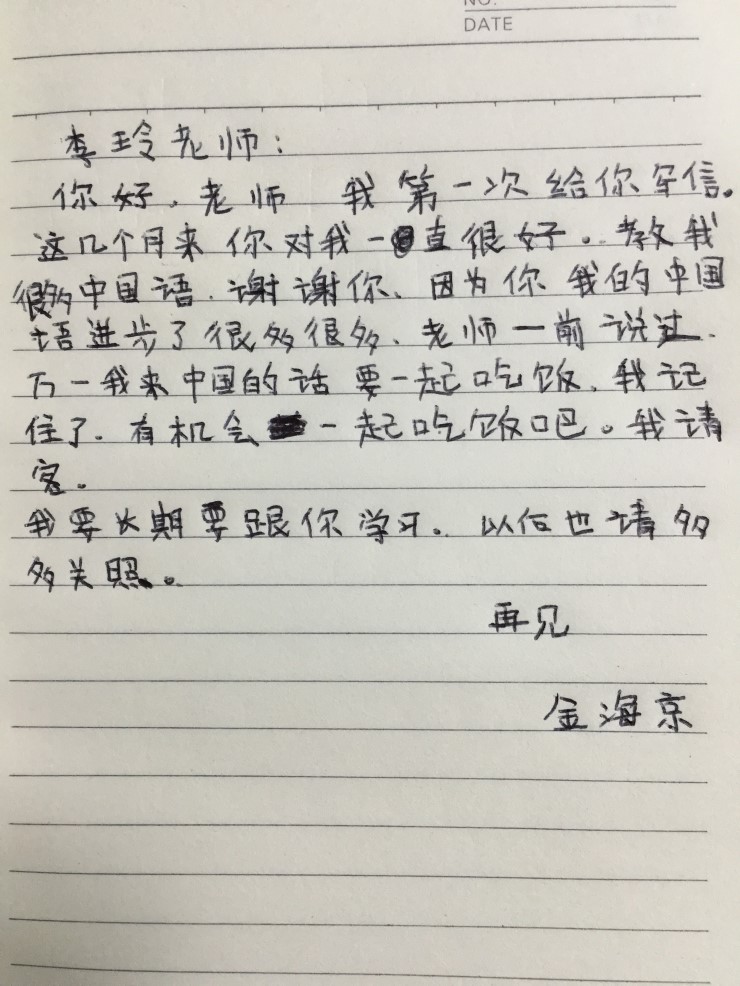 NO.
DATE
李玲老师：
你好、老师 我第一次给你写信。
这几个月来你对我一直很好。教我
很多中国语、谢谢你、因为你 我的中国
语进步了很多很多、老师一前说过、
万一我来中国的话 要一起吃饭、我记
住了、有机会一起吃饭吧。我请
客。
我要长期要跟你学习。以后也请多
多关照。
再见
金海京